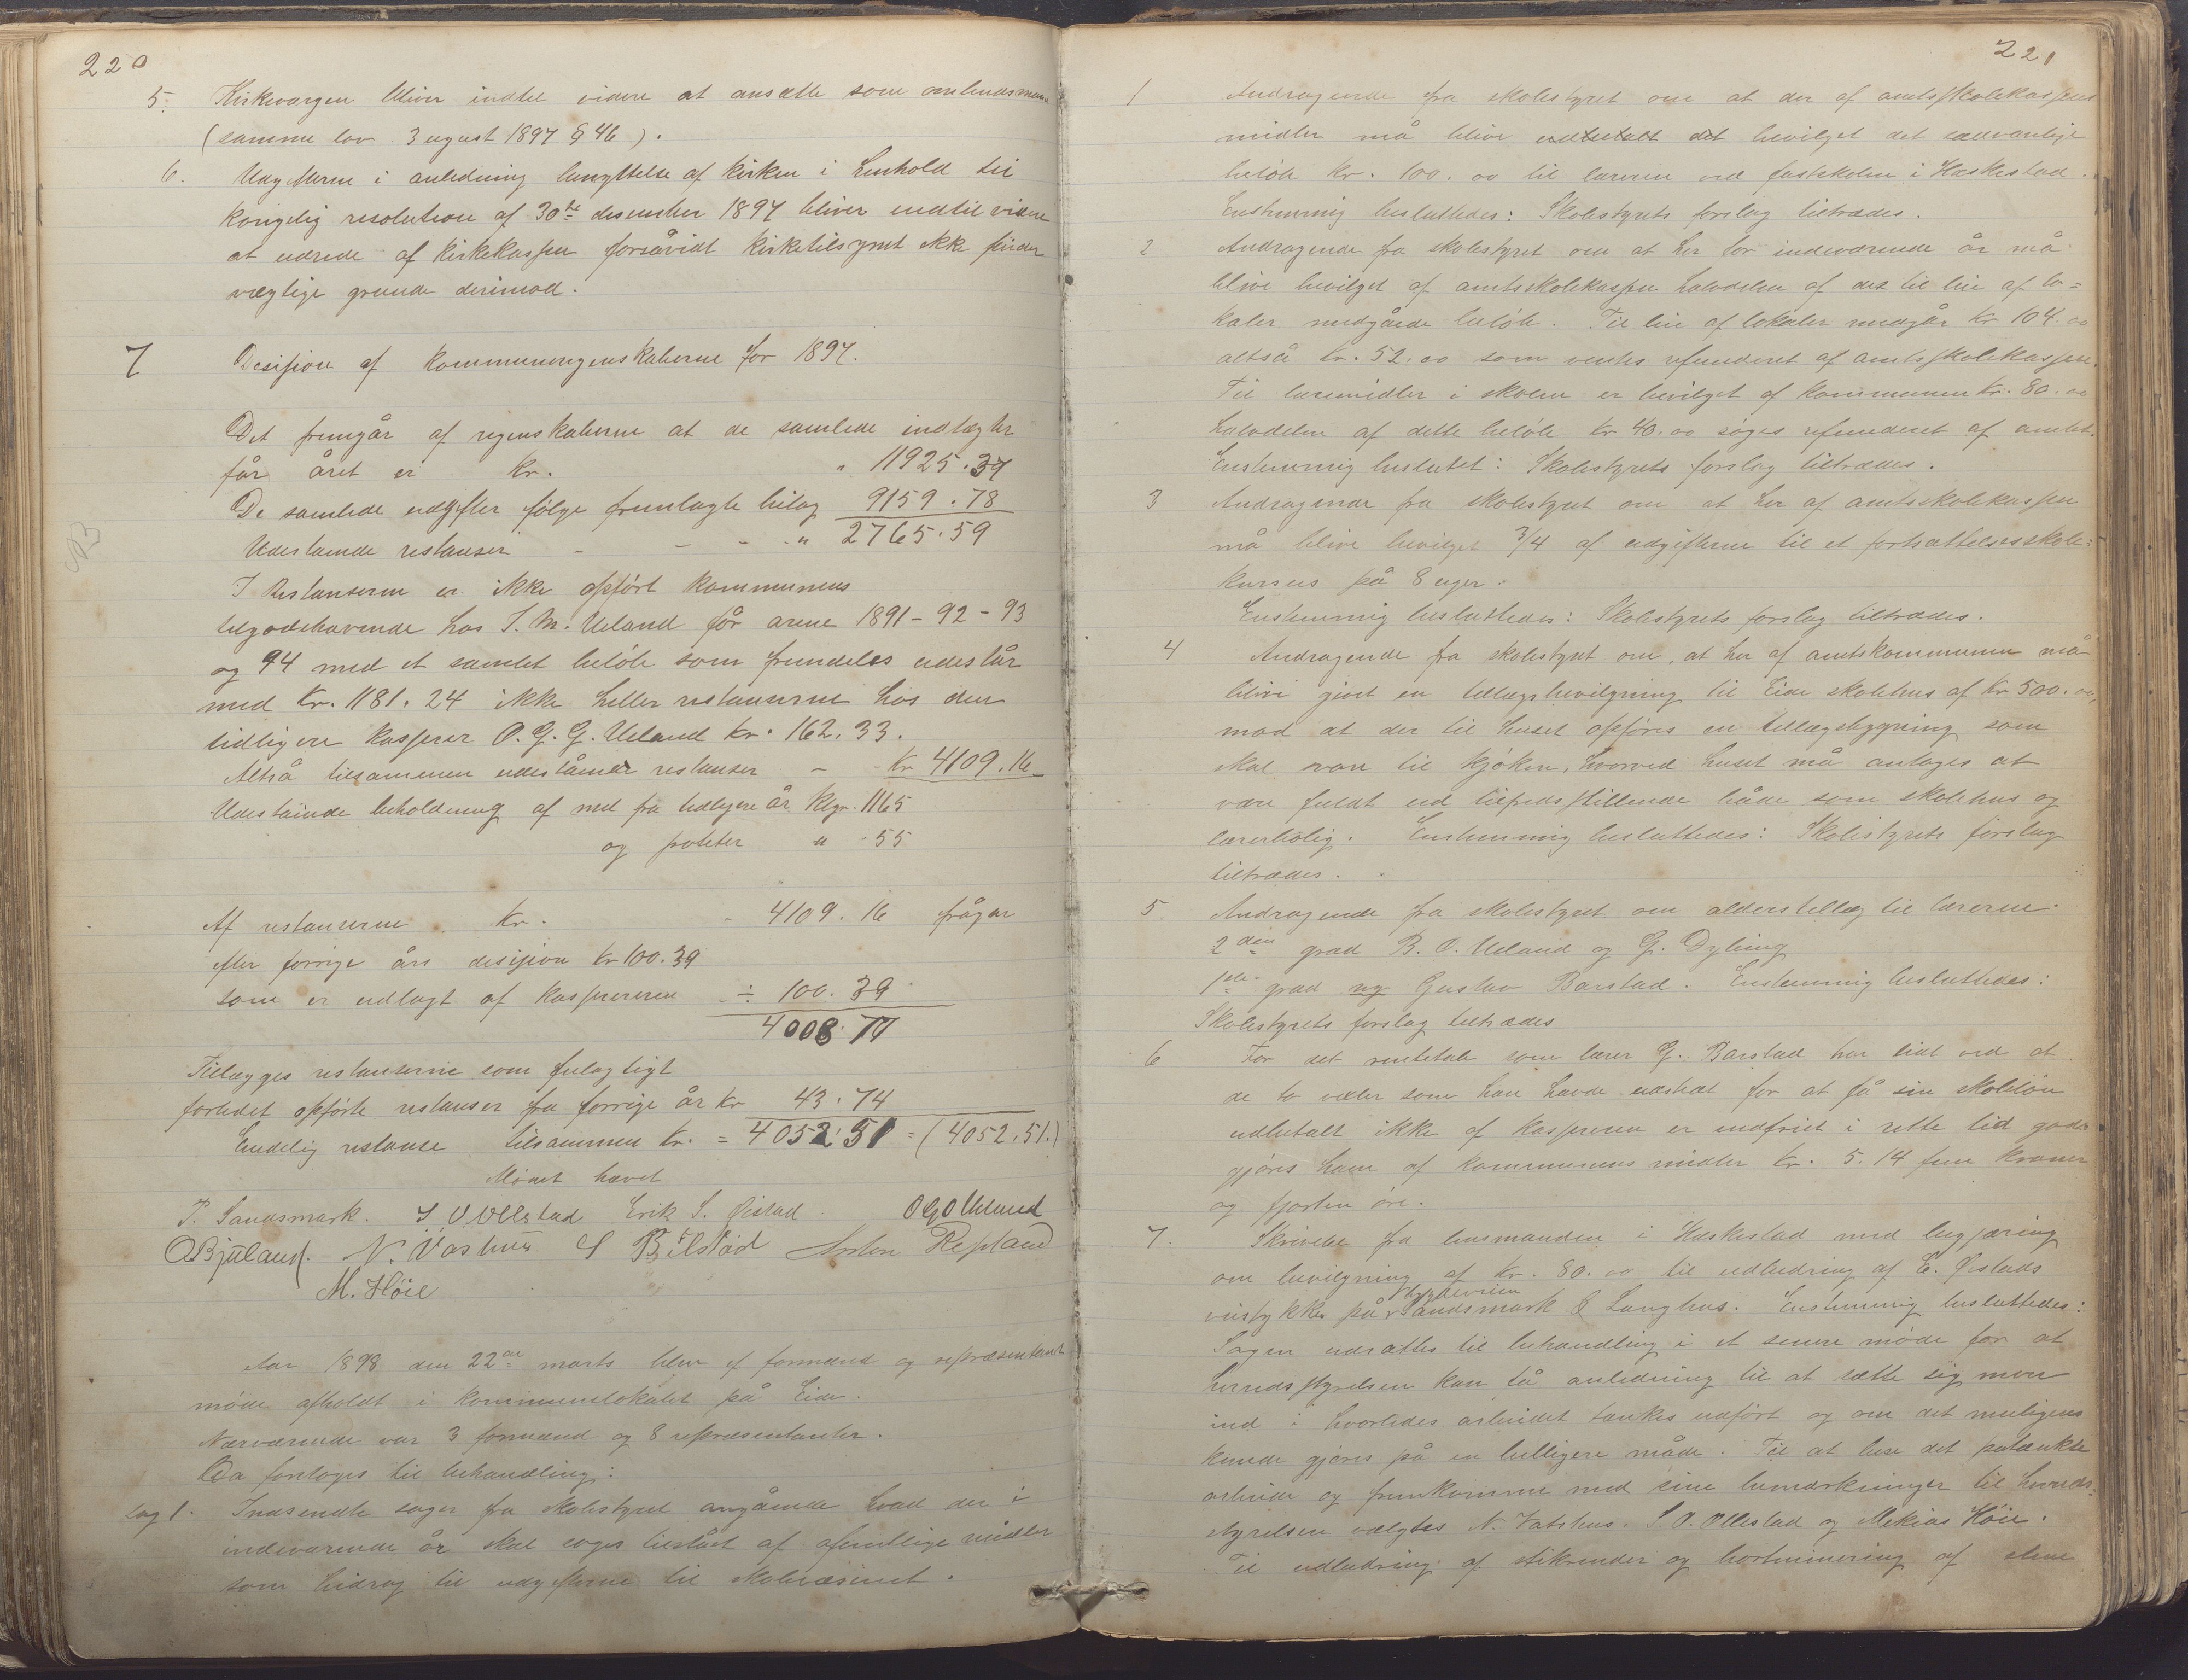 220
5. Kirkeværgen bliver indtil videre at ansætte som ombudsman
(samme lov 3 ugust 1897 § 46).
6. Udgifterne i anledning benyttelse af kirken i henhold til
kongelig resolution af 30te desember 1897 bliver indtil videre
at udrede af kirkekassen forsåvidt kirketilsynet ikke finder
vægtige grunde derimod.
7 Desisjion af kommuneregnskaberne for 1897.
Det fremgår af regnskaberne at de samlede indtægter
får året er kr. " 11925.37
De samlede udgifter følge fremlagte bilag 9159.78
Udestående restanser - - - " 2765.59
I Restanserne er ikke opført kommunens
tilgodehavende hos T. M. Ueland får årene 1891-92-93
og 94 med et samlet beløb som fremdeles udestår
med kr. 1181.24 ikke heller restanserne hos den
tidligere kasserer O. G. G. Ueland kr. 162.33.
Altså tilsammen udestående restanser - - kr 4109.16
Udestående beholdning af med fra tidligere år. Klgr. 1165
og poteter " 55
Af restanserne kr. - 4109.16 frågar
efter forrige års desisjion kr 100.39
som er udlagt af kassereren ÷ 100.39
4008.77
Tillægges restanserne som
forledet opførte restanser fra forrige år kr 43.74
Endelig restanse tilsammen kr. = 4052.51 = (4052.51.)
Mødet hævet
P. Sandsmark. S O Ollestad Erik S. Øistad. O G O Ueland
O Bjuland. N. Vashus S Bilstad Anton Refsland
M. Höie
Aar 1898 den 22de marts blev et formænd og repræsentant
møde afholdt i kommunelokalet på Eide.
Nærværende var 3 formænd og 8 repræsentanter.
Da foretoges til behandling:
Sag 1. Indsendte sager fra skolestyret angående hvad der i
indeværende år skal søges tilstået af ofentlige midler
som bidrag til udgifterne til skolevæsenet.
221
1 Andragende fra skolestyret om at der af amtsskolekassens
midler må blive udbetalt det bevilget det sædvanlige
beløb kr. 100.00 til læreren ved fastskolen i Heskestad.
Enstemmig besluttedes: Skolestyrets forslag tiltrædes.
2 Andragende fra skolestyret om at her for indeværende år må
blive bevilget af amtsskolekassen halvdelen af det til leie af lo=
kaler medgåede beløb. Til leie af lokaler medgår kr 104.00
altså kr. 52.00 som ventes refunderet af amtsskolekassen.
Til læremidler i skolen er bevilget af kommunen kr. 80.00
halvdelen af dette beløb kr 40.00 søges refunderet af amtet.
Enstemmig besluttet: Skolestyrets forslag tiltrædes.
3 Andragende fra skolestyret om at her af amtsskolekassen
må blive bevilget 3/4 af udgifterne til et fortsættelsesskole=
kursus på 8 uger.
Enstemmig besluttedes: Skolestyrets forslag tiltrædes.
4 Andragende fra skolestyret om, at her af amtskommunen må
blive givet en tillægsbevilgning til Eide skolehus af kr 500.00,
mod at der til huset opføres en tillægsbygning som
skal være til kjøken, hvorved huset må antages at
være fuldt ud tilfredsstillende både som skolehus og
lærerbolig. Enstemmig besluttedes: Skolestyrets forslag
tiltrædes.
5 Andragende fra skolestyret om alderstillæg til lærerne
2den grad B. O. Ueland og G. Dybing
1ste grad og Gustav Barstad. Enstemmig besluttedes:
Skolestyrets forslag tiltrædes
6 For det rentetab som lærer G. Barstad har lidt ved at
de to veler som han havde udstedt for at få sin skoleløn
udbetalt ikke af kassereren er indfriet i rette tid godt
gjøres ham af kommunens midler kr. 5.14 fem kroner
og fjorten øre.
7. Skrivelse fra lensmanden i Heskestad med begjæring
om bevilgning af kr. 80.00 til udbedring af E. Øistads
veistykker på Sandsmark & Langhus. Enstemmig besluttedes:
Sagen udsættes til behandling i et senere møde for at
herredsstyrelsen kan få anledning til at sætte sig mere
ind i hvorledes arbeidet tænkes udført og om det muligens
kunde gjøres på en billigere måde. Til at bese det påtænkte
arbeide og fremkomme med sine bemærkninger til herreds=
styrelsen valgtes N. Vatshus, S. O. Ollestad og Mekias Höie.
Til udbedring af stikrender og bortminering af stene